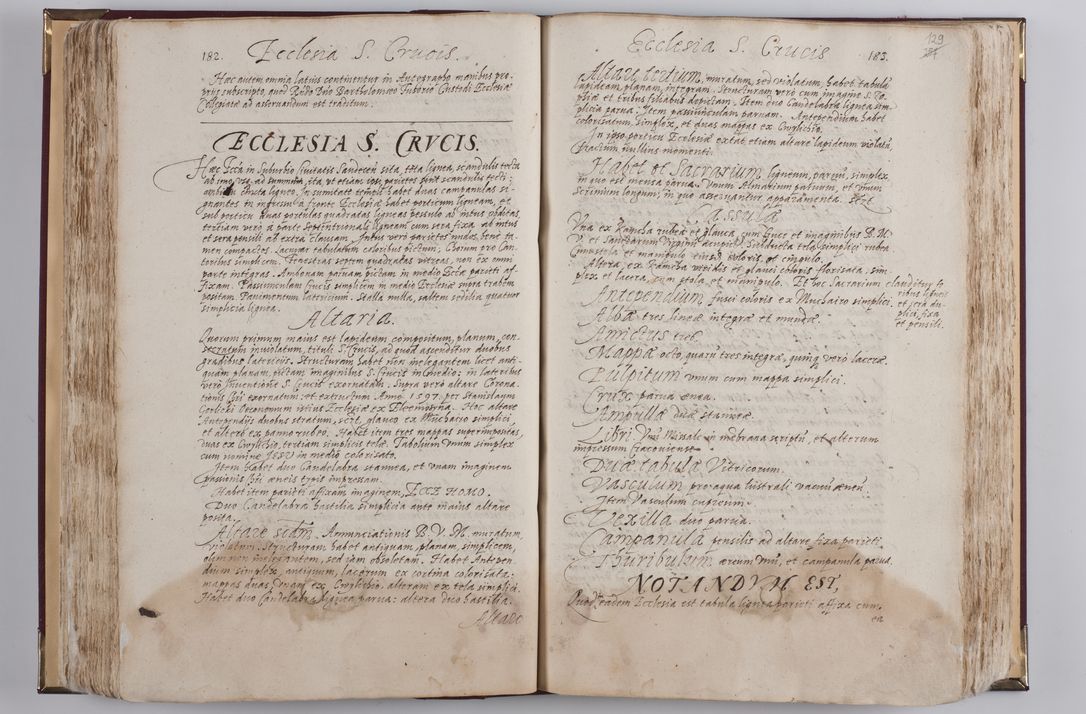 182. Ecclesia S. Crucis.
Hæc autem omnia latius continentur in Autographo manibus pro-
prijs subscripto, quod Rndo Dno Bartholomæo Custodi Ecclesiæ
Collegiatæ ad asseruandum est traditum.
ECCLESIA S. CRVCIS.
Hæc Eccła in Suburbio Ciuitatis Sandecen sita, tota lignea, scandulis tecta
ab imo usq ad summum, ita, ut etiam ipsi parietes sint scandulis tecti:
ambitu cincta ligneo. In sumitate templi habet duas campanulas si-
gnantes. In ingressu a fronte Ecclesiæ habet porticum ligneam, et
sub porticu duas portulas quadratas ligneas pessulo ab intus obditas,
tertiam vero a parte Septentrionali ligneam cum sera fixa ab intus
et sera pensili ab extra clausam. Intus vero parietes nudos, bene ta-
men compactos. Lacunar tabulatum coloribus pictum: Chorum pro Can-
toribus simplicem. Fenestras septem quadratas vitreas, non ex omni
parte integras. Ambonam paruam pictam in medio Eccłæ parieti af-
fixam. Passiunculam Crucis simplicem in medio Ecclesiæ supra trabem
positam. Pauimentum latericium. Stalla nulla, saltem sedilia quatuor
simplicia lignea.
Altaria.
Quorum primum maius est lapideum compositum, planum, con-
secratum inuiolatum, tituli S. Crucis, ad quod ascenditur duobus
gradibus latericijs. Structuram habet non inelegantem licet anti-
quam planam, pictam imaginibus S. Crucis in medio: in lateribus
vero Inuentione S. Crucis exornatam. Supra vero altare Corona-
tionis Chri exornatum et extructum Anno 1597 per Stanislaum
Gorlicki Oeconomum istius Ecclesiæ ex Eleemosyna. Hoc altare
Antependijs duobus stratum, vzt, glauco ex Muchario simplici
et altero ex panno rubeo. Habet item tres mappas superimpositas,
duas ex Cwylichio, tertiam simplicis telæ. Tabolium vnum simplex
cum nomine JESU in medio colorisato.
Item habet duo Candelabra stannea, et vnam imaginem
passionis Chri æneis typis impressam.
Habet item parieti affixam imaginem, ECCE HOMO.
Duo Candelabra hastilia simplicia ante maius altare
posita.
Altare scdm Annunciationis B. V. M. muratum,
violatum. Structuram habet antiquam, planam, simplicem,
olim non inelegantem, sed iam obsoletam. Habet Antepen-
dium simplex, antiquum, lacerum ex cortina colorisata:
mappas duas, vnam ex Cwylichio, alteram ex tela simplici.
Habet duo Candelabra lignea parua: altera duo hastilia.
Altare
Ecclesia S. Crucis 183.
129
Altare tertium, muratum, sed violatum, habet tabulā
lapideam planam, integram. Structuram verò cum imagine S.
et tribus filiabus depictam. Item duo Candelabra lignea sim-
plicia parua. Item passiunculam paruam. Antependium habet
colorisatum, simplex, et duas mappas ex Cwylichio.
In ipso porticu Ecclesiæ extat etiam altare lapideum violatū,
fractum, nullius momenti.
Habet et Sacrarium ligneum, paruum, simplex
in quo est mensa parua. Vnum Almarium paruum, et vnum
Scrinium longum, in quo asseruantur apparamenta. Vzt.
Casulæ
Vna ex Kamcha rubea et glauca, cum Cruce et imaginibus B. M.
V. et Sanctarum Virginū acupicta. Subducta tela simplici rubea.
Cum stola et manipulo eiusd coloris, et cingulo.
Altera, ex Kamcha viridis et glauci coloris florisata, sim-
plex, et lacera, cum stola, et manipulo. Et hoc Sacrarium clauditur fo-
ribus ligneis
et sera du-
plici, fixa
et pensili.
Antependium fusci coloris ex Muchairo simplici.
Albæ tres lineæ integræ et mundæ.
Amictus tres.
Mappæ octo, quarū tres integræ, quinq verò laceræ.
Pulpitum vnum cum mappa simplici.
Crux parua ænea.
Ampullæ duæ stanneæ.
Libri Vnū Missale in mēbrana scriptū, et alterum
impressum Cracouiense.
Duæ tabulæ Vitricorum.
Vasculum pro aqua lustrali vacuū æneū.
Item Vasculum cupreum.
Vexilla duo parua.
Campanula pensilis ad altare fixa parieti.
Thuribulum æreum vnū, et campanula parua.
NOTANDVM EST,
Quod in eadem Ecclesia est tabula lignea parieti affixa cum.
en